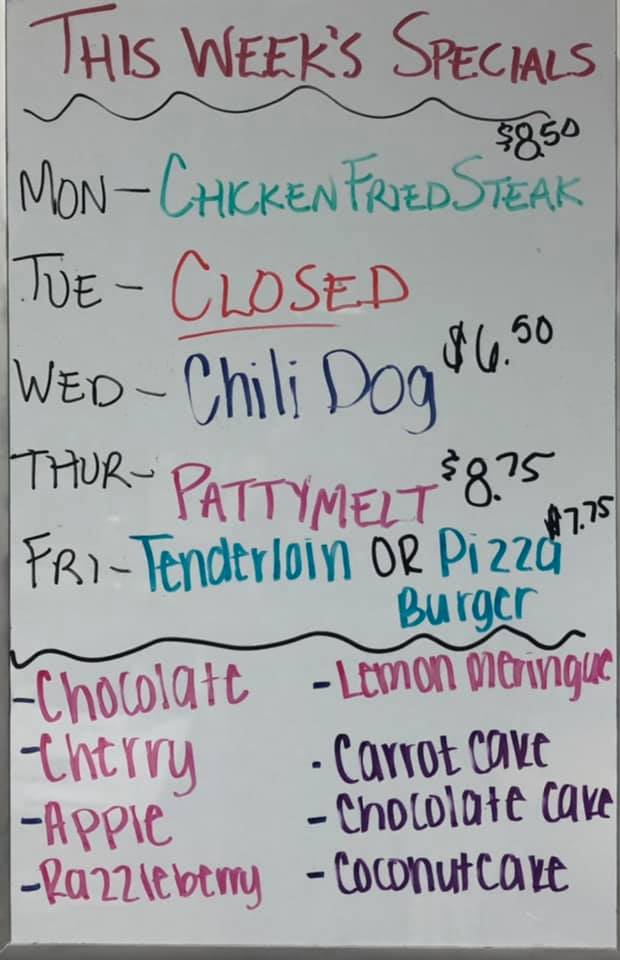 THIS WEEK'S SPECIALS
$8.50
MON - CHICKEN FRIED STEAK
TUE - CLOSED
WED - Chili Dog $6.50
THUR - PATTYMELT $8.75
$7.75
FRI - Tenderloin OR Pizza
Burger
- Chocolate
- Cherry
- Apple
- Razzleberry
- Lemon meringue
- Carrot cake
- Chocolate cake
- Coconut cake